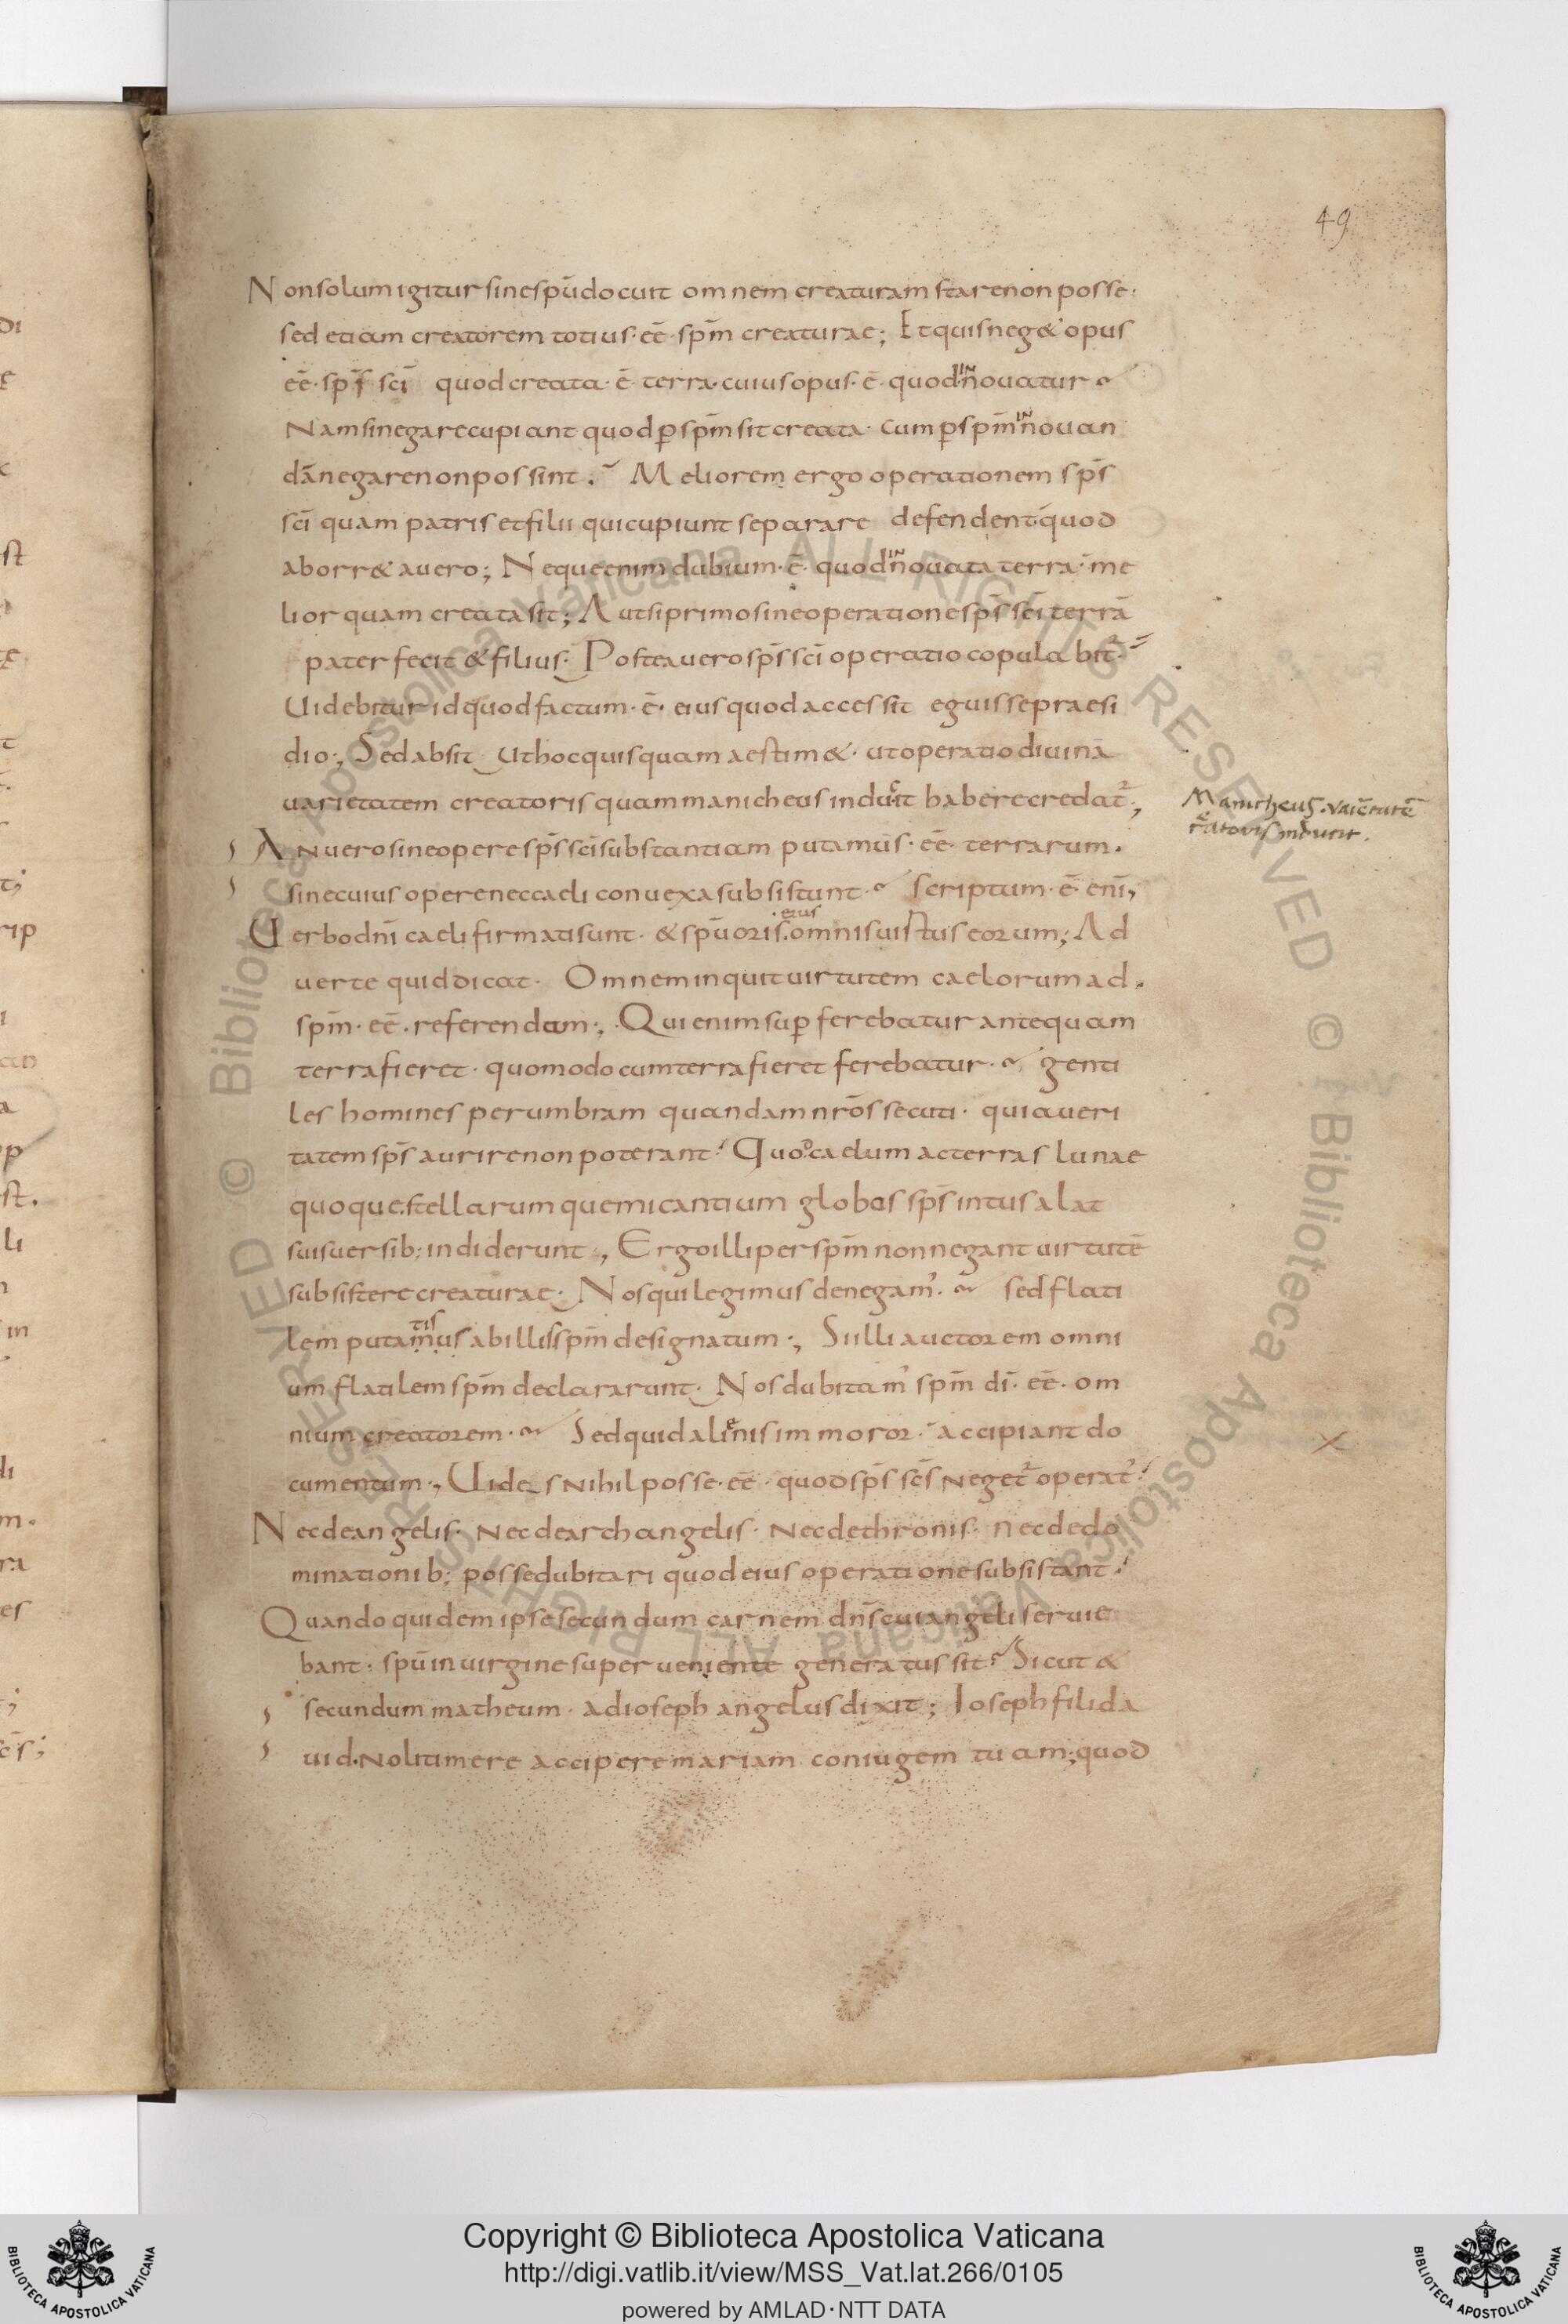 49
Non solum igitur sine spū docuit omnem creaturam stare non posse·
sed etiam creatorem totius· eē· spm̄ creaturae; Et quis neg& opus
eē· sps̄ sci̅ quod creata· ē· terra· cuius opus· ē· quod innouatur
Nam si negare cupiant quod p̱ spm̄ sit creata· cum p̱ spm̄ innouan
dā negare non possint. Meliorem ergo operationem sps̄
sci̅ quam patris et filii qui cupiunt separare defendent quod
aborr& a uero; Neque enim dubium· ē· quod innouata terra· me
lior quam creata sit; Aut si primo sine operatione sps̄ sci̅ terrā
pater fecit & filius· Postea uero sps̄ sci̅ operatio copulabit̄·
Uidebitur id quod factum· ē· eius quod accessit eguisse praesi
dio·, Sed absit ut hoc quisquam aestim&· ut operatio diuina
uarietatem creatoris quam manicheus induc̓it habere credat᷑;
Manicheus· varietatē
creatoris inducit.
An uero sine opere sps̄ sci̅ substantiam putamus· eē· terrarum.
sine cuius opere nec caeli conuexa subsistunt· scriptum· ē· eni̅,
Uerbo dni̅ caeli firmati sunt· & spū oris eius omnis uirtus eorum; Ad
uerte quid dicat· Omnem inquit uirtutem caelorum ad
spm̄· eē· referendam·, Qui enim sup̱ferebatur antequam
terra fieret· quomodo cum terra fieret ferebatur· genti
les homines per umbram quandam nrōs secuti· quia ueri
tatem sps̄ aurire non poterant· Quod caelum ac terras lunae
quoque stellarumque micantium globos sps̄ intus alat
suis uersib; indiderunt·, Ergo illi per spm̄ non negant uirtutē
subsistere creaturae· Nos qui legimus denegam᾿· sed flati
lem putamustis ab illis spm̄ designatum·, Si illi auctorem omni
um flatilem spm̄ declararunt· Nos dubitam᾿ spm̄ di̅· eē· om
nium creatorem· Sed quid alienis immoror· accipiant do
cumentum·, Uides nihil posse· eē· quod sps̄ scs̄ neget᷑ operat᷑·
Nec de angelis· nec de archangelis· nec de thronis· nec de do
minationib; posse dubitari quod eius operatione subsistant·
Quando quidem ipse secundum carnem dns̄ cui angeli seruie
bant· spū in uirgine superueniente generatus sit· Sicut &
secundum matheum· ad ioseph angelus dixit; Ioseph fili da
uid· noli timere accipere mariam coniugem tuam; quod
Copyright © Biblioteca Apostolica Vaticana
http://digi.vatlib.it/view/MSS_Vat.lat.266/0105
powered by AMLAD·NTT DATA